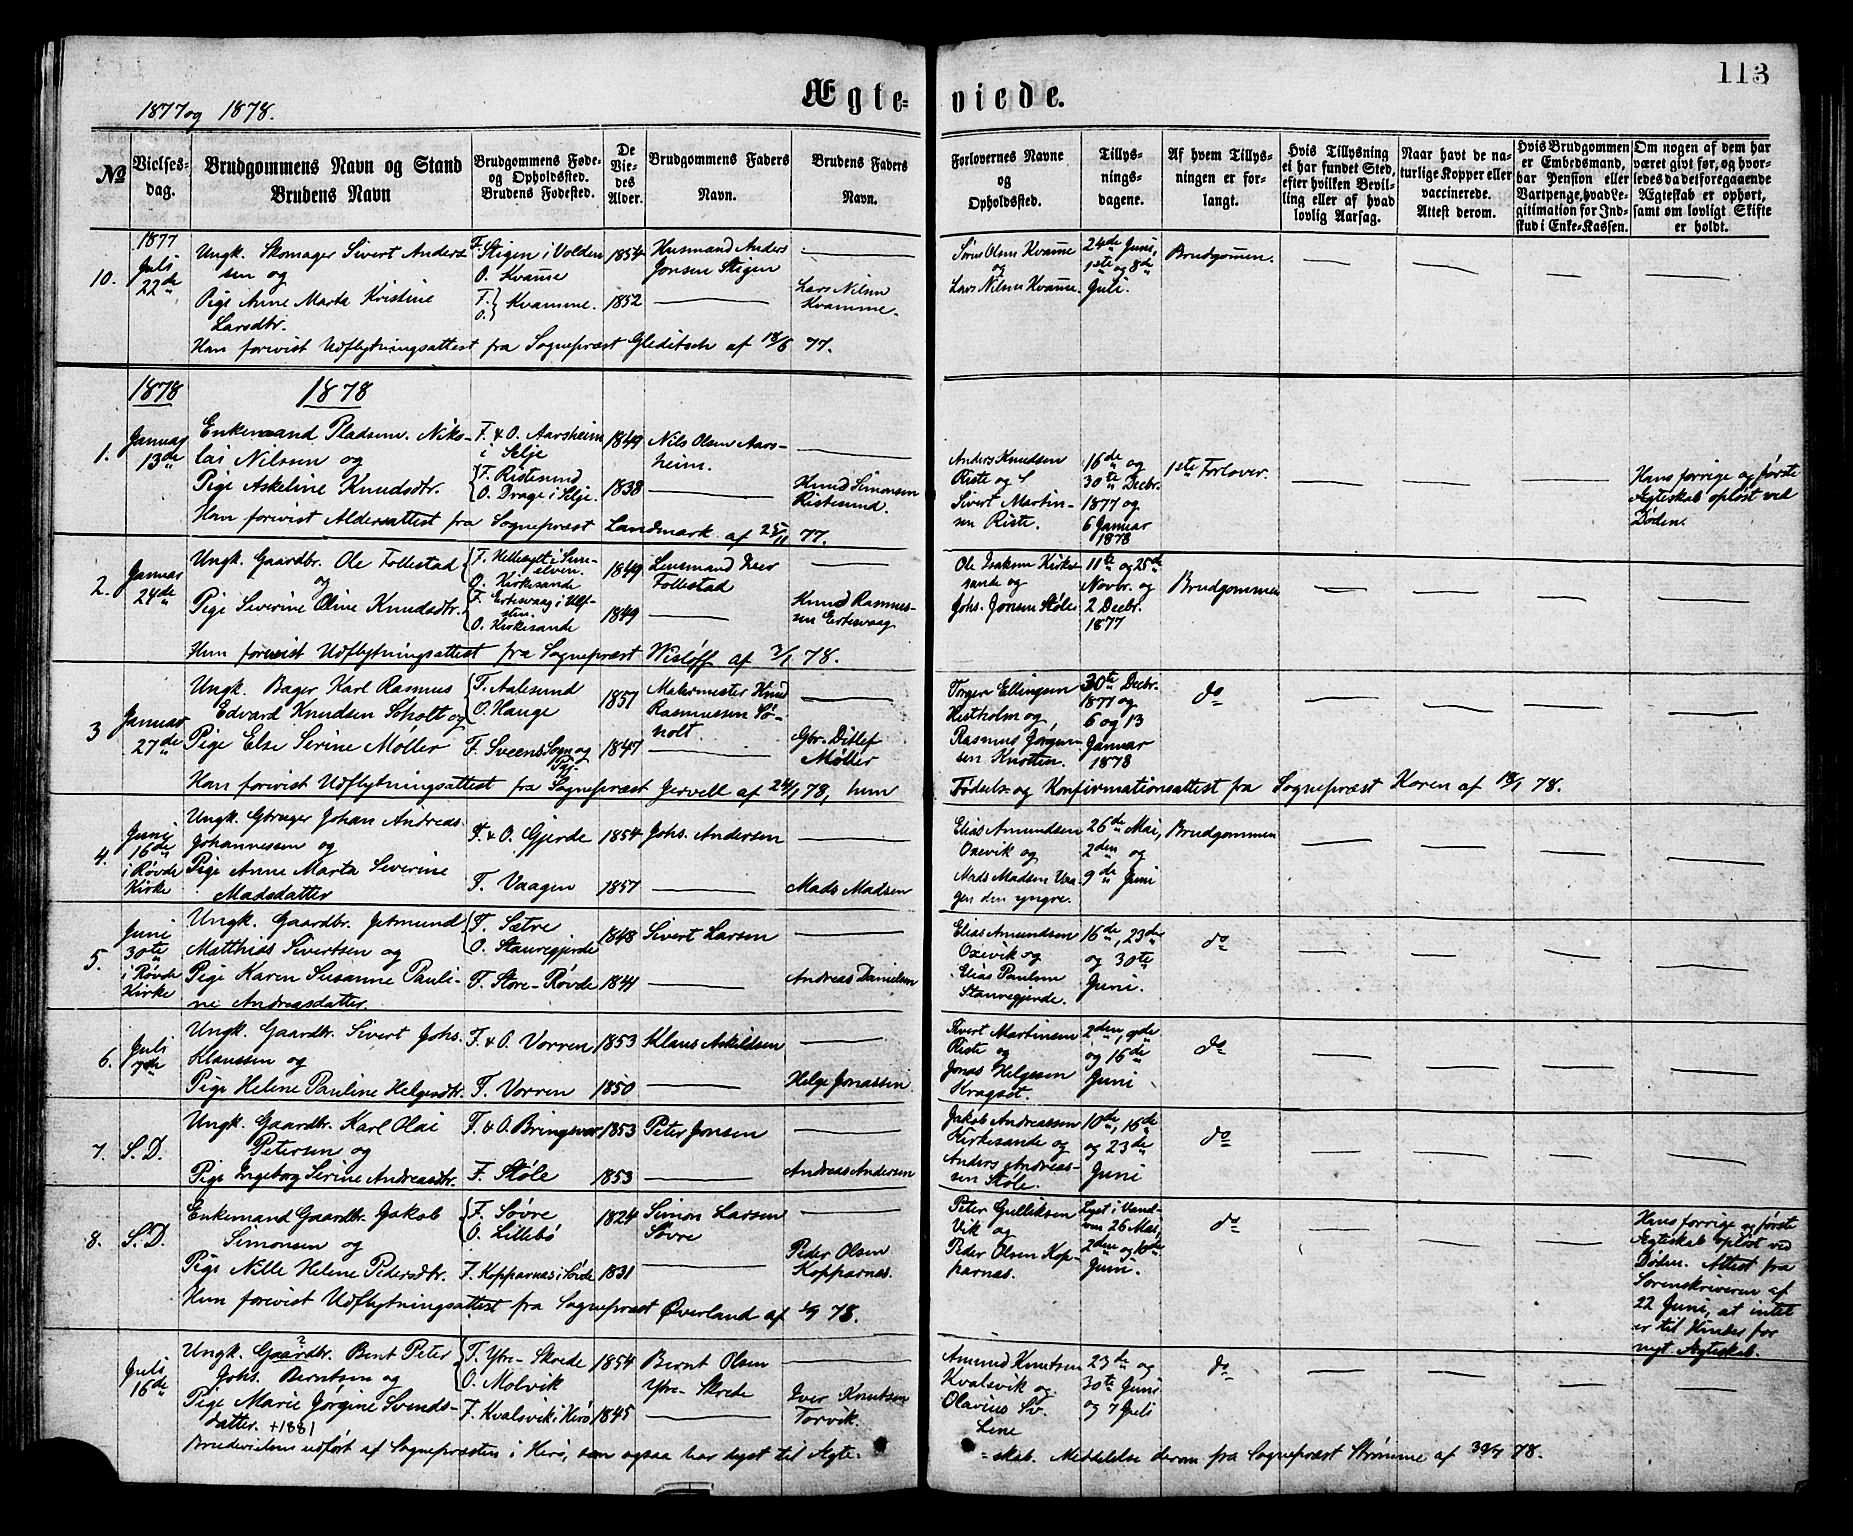 113
1877 og 1878.
Ægte- viede.
№
Vielses-
dag.
Brudgommens Navn og Stand
Brudens Navn
Brudgommens Føde-
og Opholdssted.
Brudens Fødested.
De
Vie-
des
Alder.
Brudgommens Faders
Navn.
Brudens Faders
Navn.
Forlovernes Navne
og
Opholdssted.
Tillys-
nings-
dagene.
Af hvem Tillys-
ningen er for-
langt.
Hvis Tillysning
ei har fundet Sted,
efter hvilken Bevil-
ling eller af hvad
lovlig Aarsag.
Naar havt de na-
turlige Kopper eller
vaccinerede.
Attest derom.
Hvis Brudgommen
er Embedsmand,
har Pension eller
Vartpenge, hvad Le-
gitimation for Ind-
skud i Enke-Kassen.
Om nogen af dem har
været givt før, og hvor-
ledes da det foregaaende
Ægteskab er ophørt,
samt om lovligt Skifte
er holdt.
10.
1877
Juli
22de
Ungk. Skomager Sivert Anders
sen og
Pige Anne Marta Kristine
Larsdtr.
F. Stigen i Volden
O. Kvamme
F.
O. Kvamme.
1854
1852
Husmand Anders
Jonsen Stigen
Lars Nilsen
Kvamme.
Søren Olsen Kvamme
og
Lars Nilsen Kvamme.
24de Juni,
1ste og 8de
Juli.
Brudgommen.
Han forevist Udflytningsattest fra Sogneprest Gleditsch af 18/6 77.
1878
1878
1.
Januar
13de
Enkemand Pladsem. Niko-
lai Nilssen og
Pige Askeline Knudsdtr.
F. & O. Aarsheim
i Selje
F. Ristesund
O. Drage i Selje.
1849
1838
Nils Olsen Aars-
heim.
Knud Simonsen
Ristesund.
Anders Knudsen
Riste og
Sivert Martin-
sen Riste.
16de og
30te Decbr.
1877 og
6 Januar
1878
1ste Forlover.
Hans forrige og første
Ægteskab opløst ved
Døden.
Han forevist Aldersattest fra Sogneprest Landmark af 25/11 77.
2.
Januar
24de
Ungk. Gaardbr. Ole Follestad
og
Pige Severine Oline Knudsdtr.
F. Hellesylt i Sun-
elven.
O. Kirkesande
F. Ertesvaag i Ulf-
sten.
O. Kirkesande
1849
1849
Lensmand Iver
Follestad
Knud Rasmus-
sen Ertesvaag
Ole Isaksen Kirke-
sande og
Johs. Jonsen Støle
11te og 25de
Novbr. og
2 Decbr.
1877
Brudgommen
Hun forevist Udflytningsattest fra Sogneprest Wisløff af 3/1 78.
3
Januar
27de
Ungk. Bager Karl Rasmus
Edvard Knudsen Søholt og
Pige Else Serine Møller
F. Aalesund
O. Hauge
F. Sveens Sogn og
Pgj.
1851
1847
Malermester Knud
Rasmussen Sø-
holt.
Gbr. Ditlef
Møller
Torger Ellingsen
Hestholm og,
Rasmus Jørgen-
sen Knotten.
30te Decbr.
1877 og
6 og 13
Januar
1878
do
Han forevist Udflytningsattest fra Sogneprest Jervell af 24/1 78, hun Fødsels- og Konfirmationsattest fra Sogneprest Koren af 18/1 78.
4.
Juni
16de
i Røvde
Kirke
Ungk. Gbruger Johan Andreas
Johannessen og
Pige Anne Marta Severine
Madsdatter
F. & O. Gjerde
F. Vaagen
1854
1857
Johs. Andersen
Mads Madsen
Elias Amundsen
Oxevik og
Mads Madsen Vaa-
gen den yngre.
26de Mai,
2den og
9de Juni
Brudgommen
5.
Juni
30te
i Røvde
Kirke
Ungk. Gaardbr. Jetmund
Matthias Sivertsen og
Pige Karen Susanne Pauli-
ne Andreasdatter.
F. Sætre
O. Stauregjerde
F. Store-Røvde
1848
1841
Sivert Larsen
Andreas Danielsen
Elias Amundsen
Oxevik og
Elias Paulsen
Stauregjerde.
16de, 23de
og 30te
Juni.
do
6.
Juli
7de
Ungk. Gaardbr. Sivert Johs.
Klaussen og
Pige Helene Pauline Helgesdtr.
F. & O. Vorren
F. Vorren
1853
1850
Klaus Askildsen
Helge Jonassen
Sivert Martinsen
Riste og
Jonas Helgesen
Kragsæt.
2den, 9de
og 16de
Juni
do
7.
S. D.
Ungk. Gaardbr. Karl Olai
Petersen og
Pige Ingeborg Serine Andreasdtr.
F. & O. Bringsvor
F. Støle
1853
1853
Peter Jonsen
Andreas Andersen
Jakob Andreassen
Kirkesande og
Anders Andreas-
sen Støle.
10de, 16de
og 23de
Juni
do
8.
S. D.
Enkemand Gaardbr. Jakob
Simonsen og
Pige Nille Helene Pedersdtr.
F. Søvre
O. Lillebø
F. Kopparnas i Søvde
1824
1831
Simon Larsen
Søvre
Peder Olsen
Kopparnas.
Peter Gulliksen
Vik og
Peder Olsen Kop-
parnas.
Lyst i Vanel-
ven 26 Mai,
2den og 10de
Juni.
do
Hans forrige og første
Ægteskab opløst ved
Døden. Attest fra
Sorenskriveren af
22 Juni, at intet
er til Hinder for
nyt Ægteskab.
Hun forevist Udflytningsattest fra Sogneprest Øverland af 78.
Juli
16de
Ungk. Gaardbr. Bent Peter
Johs. Berntsen og
Pige Marie Jørgine Svends-
datter. +1881
F. Ytre-Skrede
O. Molvik
F. Kvalsvik i Herø
1854
1845
Bernt Olsen
Ytre-Skrede
Iver Knutsen
Torvik.
Amund Knutsen
Kvalsvik og
Olavius Sv.
Lene
23de og
30te Juni
og 7 Juli
do
Brudevielsen udført af Sognepresten i Herø, som ogsaa har lyst til Ægte-
-skab. Meddelelse derom fra Sogneprest Strømme af 30/7 78.